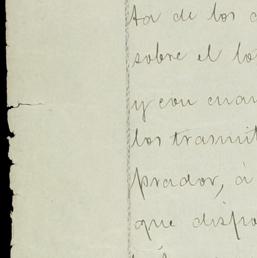 ta de los
sobre el lo
y con cuan
los trasmit
prador, á
que dispo